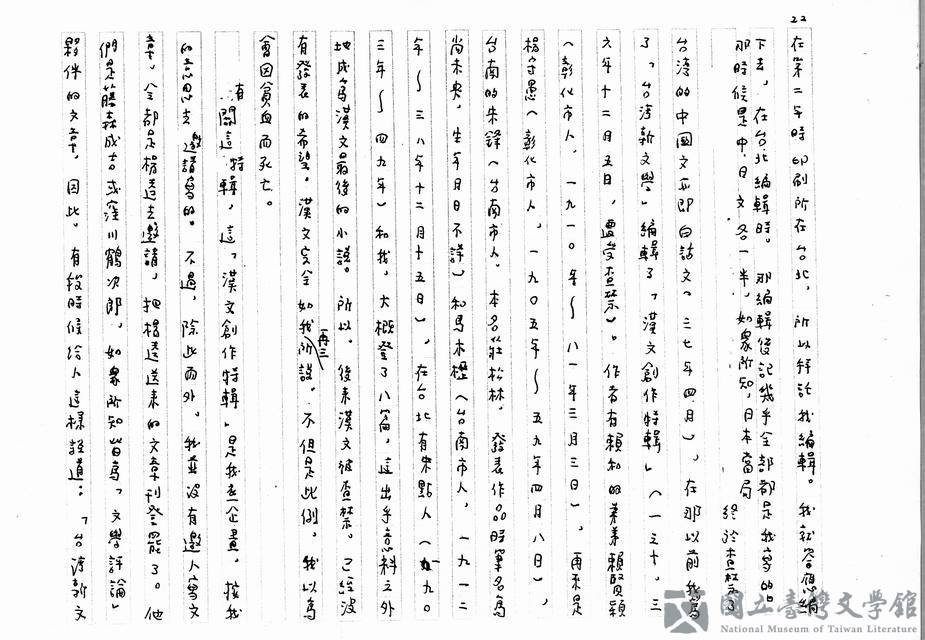 22
在第二年時印刷所在台北，所以拜託我編輯。我就答應編
下去，在台北編輯時。那編輯後記幾乎全部都是我寫的。
那時候是中、日文各一半，如眾所知，日本當局終於查禁了
台湾的中國文（亦即白話文。三七年四月），在那以前我為
了「台湾新文學」編輯了「漢文創作特輯」（一之十，三
六年十二月五日，遭受查禁）。作者有賴和的弟弟賴賢穎
（彰化市人，一九一〇年～八一年三月三日），再來是
楊守愚（彰化市人，一九〇五年～五九年四月八日），
台南的朱鋒（台南市人。本名莊松林。發表作品時筆名為
尚未央，生年月日不詳）和馬木櫪（台南市人，一九一二
年～三八年十二月十五日），在台北有朱點人（一九〇
三年～四九年）和我，大概登了八篇，這出乎意料之外
地成為漢文最後的小說。所以。後來漢文被查禁。已經沒
有發表的希望。漢文完全如我再三所說。不但是比例，我以為
會因貧血而死亡。
有關這「特輯」，這「漢文創作特輯」是我企畫。按我
的意思去邀請寫的。不過，除此而外。我並沒有邀人寫文
章。全都是楊逵去邀請，把楊逵送來的文章刊登罷了。他
們是藤森成吉或窪川鶴次郎，如眾所知皆為「文學評論」
夥伴的文章，因此。有段時候給人這樣說道：「台湾新文
國立臺灣文學館
National Museum of Taiwan Literature